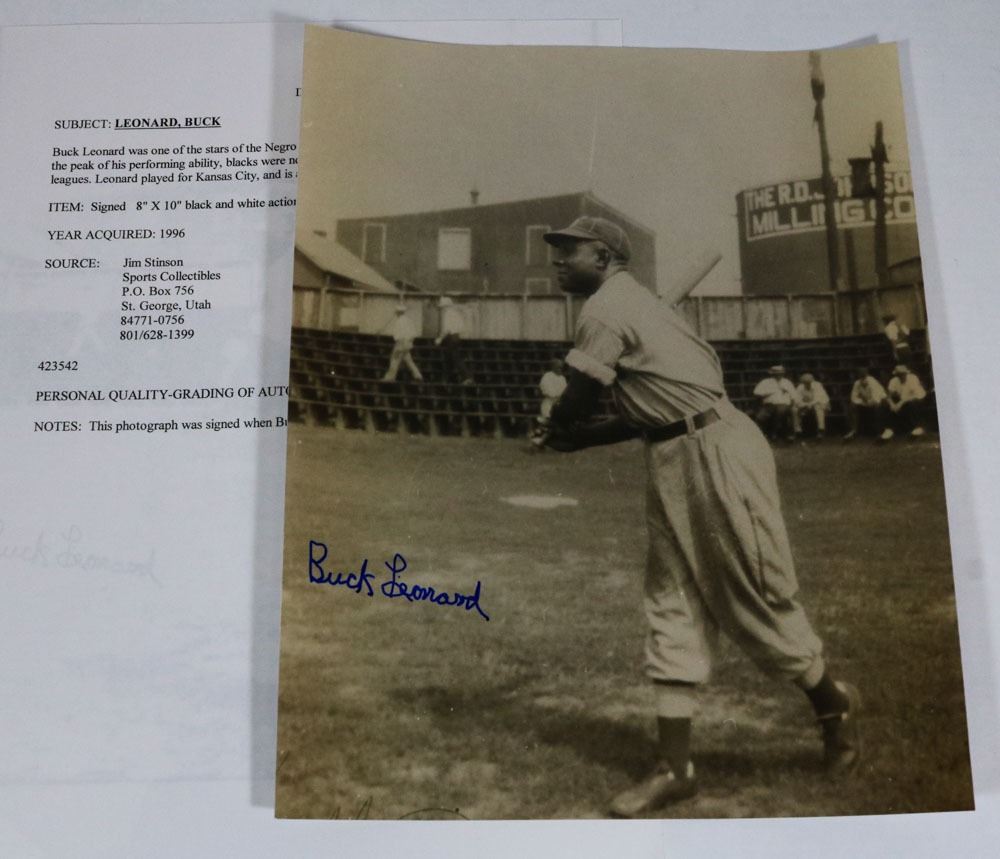 SUBJECT: LEONARD, BUCK
Buck Leonard was one of the stars of the Negro
the peak of his performing ability, blacks were
leagues. Leonard played for Kansas City, and is
ITEM: Signed 8" X 10" black and white action
YEAR ACQUIRED: 1996
SOURCE: Jim Stinson
Sports Collectibles
P.O. Box 756
St. George, Utah
84771-0756
801/628-1399
423542
PERSONAL QUALITY-GRADING OF AUTO
NOTES: This photograph was signed when
THE R.D.
MILLING CO
Buck Leonard
Buck Leonard